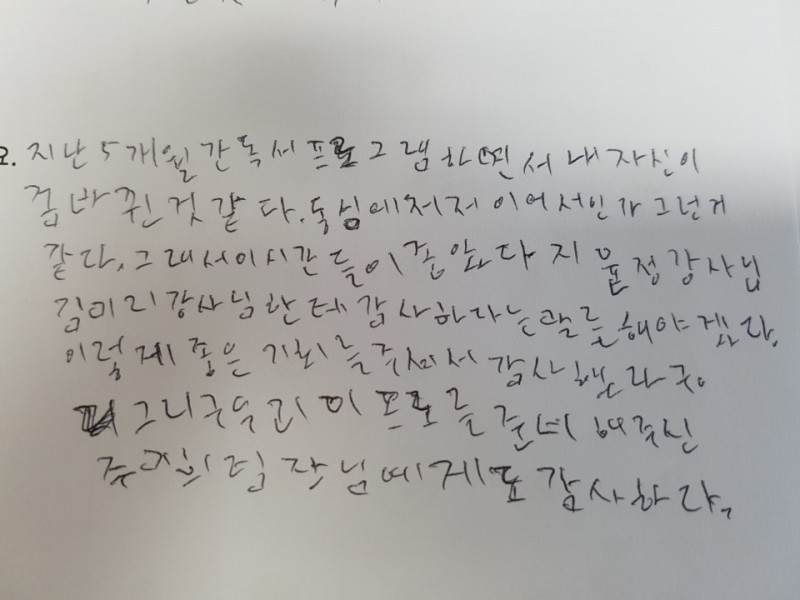 2. 지난 5개월 간 독서 프로그램 하면서 내 자신이
좀 바뀐 것 같다. 독님에저저이어서인가 그런거
같다. 그래서 이시간들이 좀 았다 지윤정강사님
김미리강사님한테 감사하다는 말를 해야겠다.
이렇게 좋은 기회를 주셔서 감사했다구.
그리구 우리 이 프로를 준비해주신
팀장님에게도 감사하다.